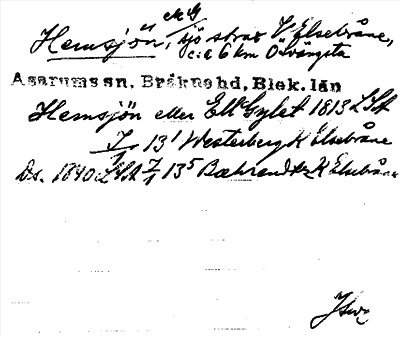 Hemsjön, sjö strax V Elsebråne,
c:a 6 km Ö Svängsta
Asarums sn, Bräkne hd, Blek. län
Hemsjön eller Gylet 1813 LSA
13¹ Westerberg K Elsebråne
Ds. 1840 LSA 13⁵ K Elsebråne